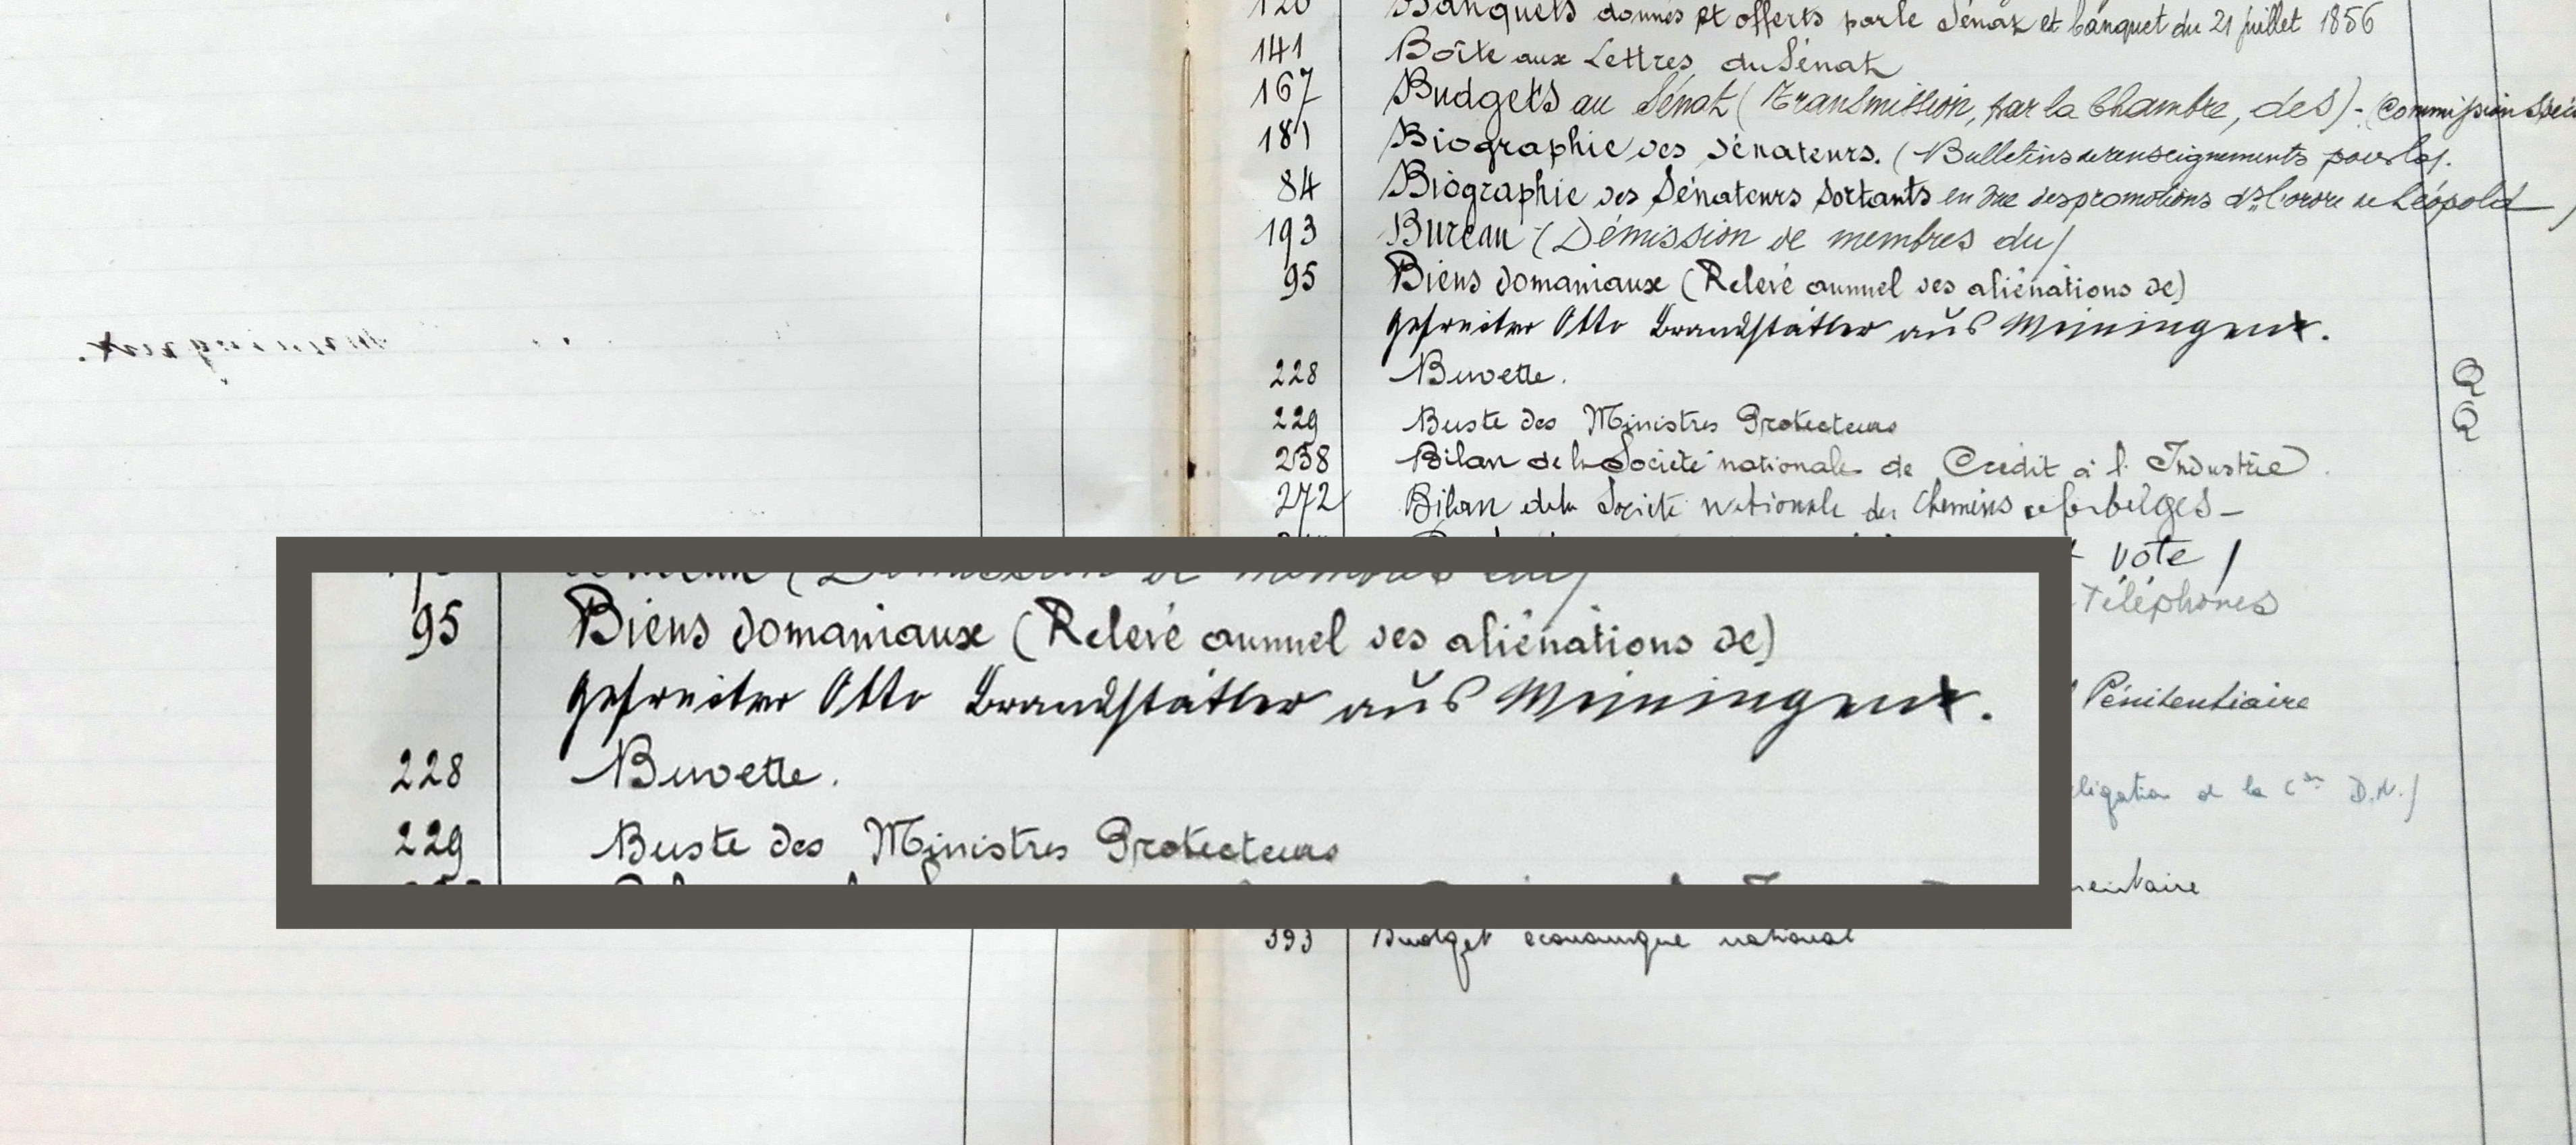 Banquets donnés et offerts par le Sénat et banquet du 21 juillet 1856
141 Boîte aux Lettres du Sénat
167 Budgets au Sénat (Transmission, par la Chambre, des) - (Commission
181 Biographie des Sénateurs. (Bulletins de renseignements pour la).
84 Biographie des Sénateurs sortants en vue des promotions ds l'ordre de Léopold)
193 Bureau (Démission de membres du)
95 Biens domaniaux (Relevé annuel des aliénations de)
Gefreiter Otto Brandstätter aus Meiningen.
228 Buvette.
229 Buste des Ministres Protecteurs
238 Bilan de la Société nationale de Crédit à l'Industrie.
272 Bilan de la Société nationale des Chemins de fer belges -
vote)
Téléphones
95 Biens domaniaux (Relevé annuel des aliénations de)
Gefreiter Otto Brandstätter aus Meiningen.
228 Buvette.
229 Buste des Ministres Protecteurs
Pénitentiaire
de la Con D.N.)
393 Budget économique national